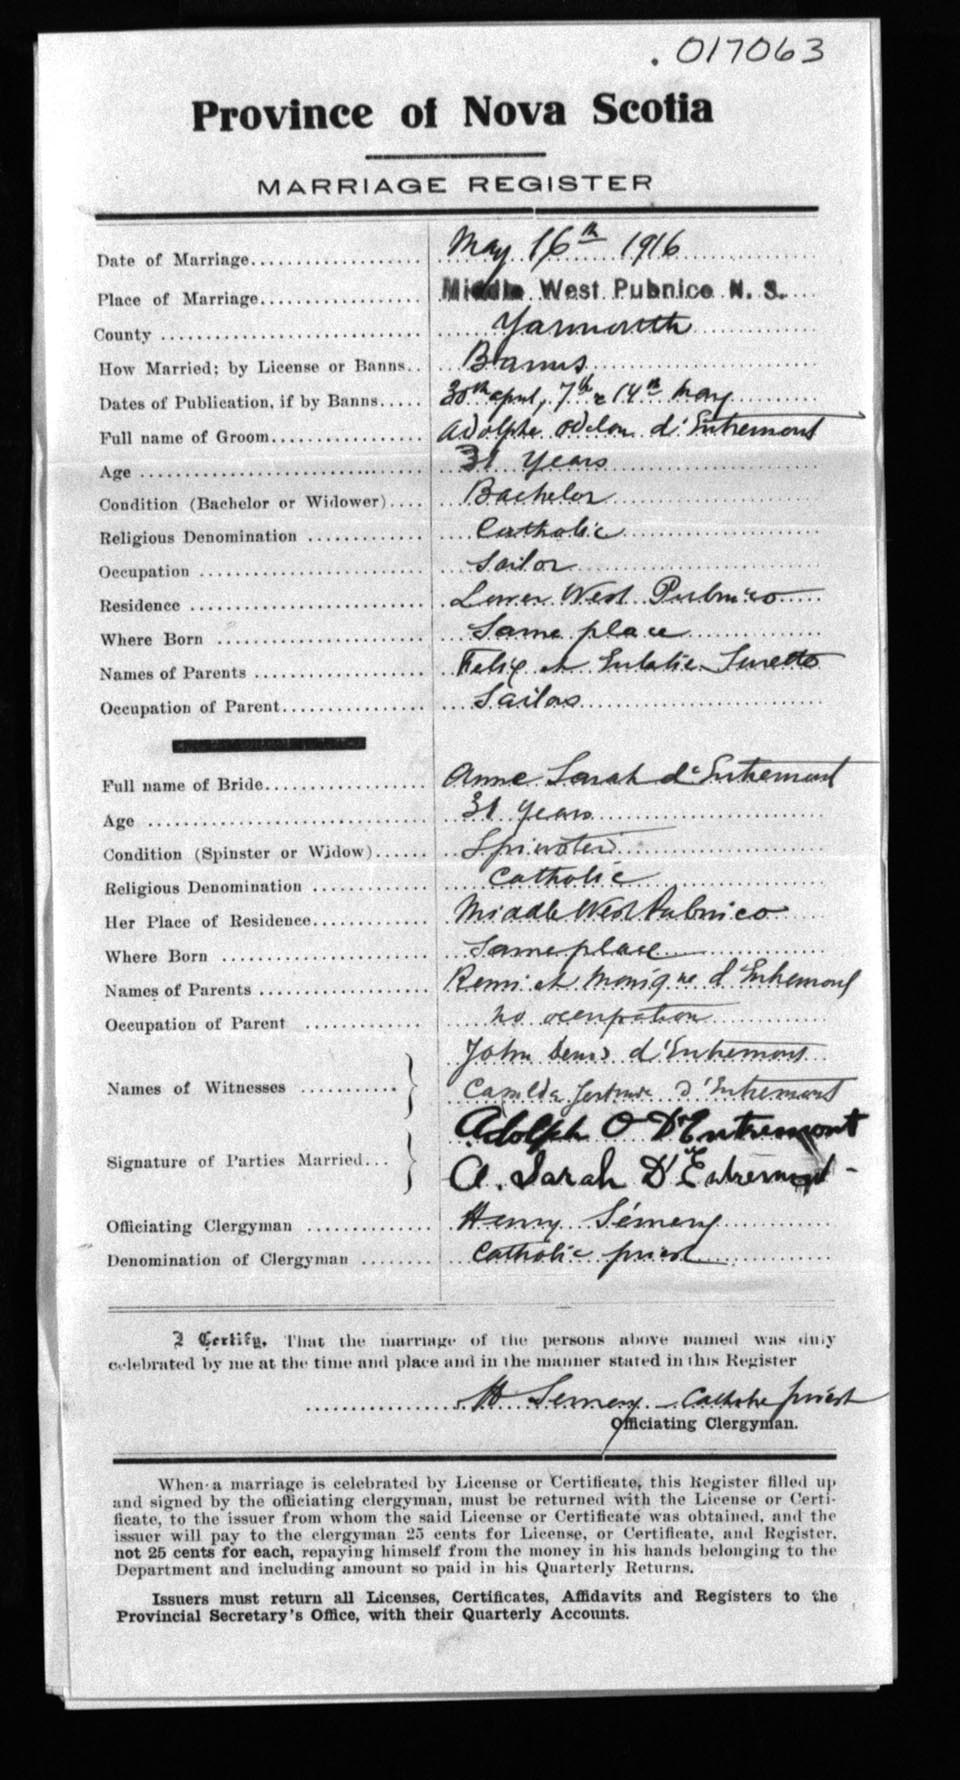 .017063
Province of Nova Scotia
MARRIAGE REGISTER
Date of Marriage.................... May 16th 1916
Place of Marriage................... Middle West Pubnico N. S.
County .............................. Yarmouth
How Married; by License or Banns.. Banns
Dates of Publication, if by Banns..... 30th april, 7th & 14th May
Full name of Groom.................. Adolphe Odelon d'Entremont
Age ................................. 31 Years
Condition (Bachelor or Widower).... Bachelor
Religious Denomination ............. Catholic
Occupation .......................... Sailor
Residence ........................... Lower West Pubnico
Where Born ........................ Same place
Names of Parents .................... Felix et Eulalie Surette
Occupation of Parent................ Sailor
Full name of Bride................... Anne Sarah d'Entremont
Age ................................. 31 years
Condition (Spinster or Widow)...... Spinster
Religious Denomination ............. Catholic
Her Place of Residence.............. Middle West Pubnico
Where Born ........................ Same place
Names of Parents .................... Remi et Monique d'Entremont
Occupation of Parent ............. no occupation
John Denis d'Entremont
Names of Witnesses ...........
Gertrude d'Entremont
Adolph O D'Entremont
Signature of Parties Married...
A. Sarah D'Entremont
Officiating Clergyman ............... Henry Sémery
Denomination of Clergyman ......... Catholic priest
I Certify, That the marriage of the persons above named was duly
celebrated by me at the time and place and in the manner stated in this Register
H Semery Catholic priest
Officiating Clergyman.
When a marriage is celebrated by License or Certificate, this Register filled up
and signed by the officiating clergyman, must be returned with the License or Certi-
ficate, to the issuer from whom the said License or Certificate was obtained, and the
issuer will pay to the clergyman 25 cents for License, or Certificate, and Register,
not 25 cents for each, repaying himself from the money in his hands belonging to the
Department and including amount so paid in his Quarterly Returns.
Issuers must return all Licenses, Certificates, Affidavits and Registers to the
Provincial Secretary's Office, with their Quarterly Accounts.